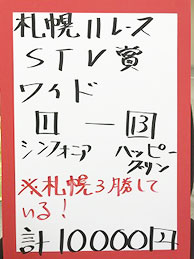 札幌11レース
STV賞
ワイド
1 ― 13
シンフォニア ハッピーグリン
※札幌3勝して
いる!
計10000円